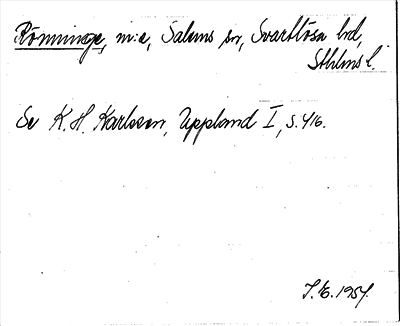 Rönninge, m:e, Salems sn, Svartlösa hd,
Sthlms l.
Se K. H. Karlsson, Uppland I, s. 416.
I. E. 1957.